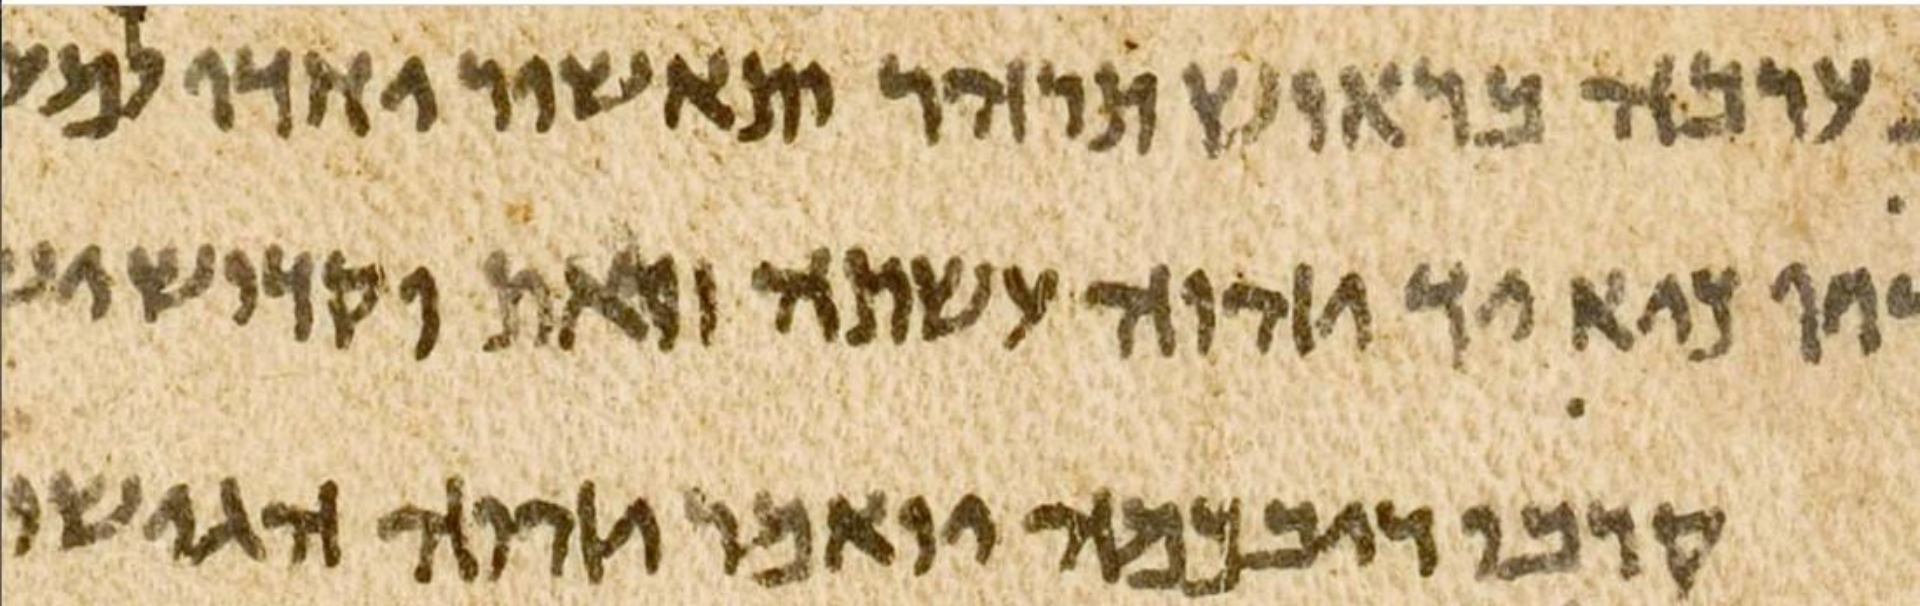 ערבה בראוש תדהר ותאשור יחדו למע
כיא יד יהוה עשתה זואת וקדוש יש
קרבו ריבכמה יואמר יהוה הגישו